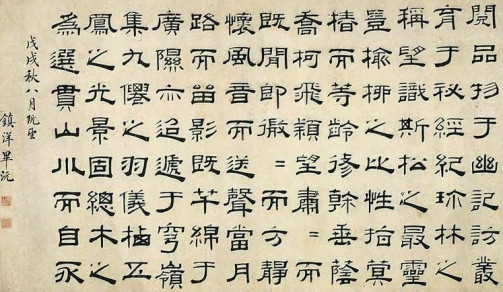 閱品物于幽記訪叢
育于秘經紀珎林之
稱堅識斯松之最靈
豈榆栁之比性指蓂
椿而等齡修幹垂蔭
喬柯飛穎望肅=而
既閒即微=而方静
懷風音而送聲當月
路而留影既芊綿于
廣隰亦迢遞于穹嶺
集九僊之羽儀栖五
鳳之光景固總木之
為選貫山川而自永
戊戌秋八月既望
鎮洋畢沅